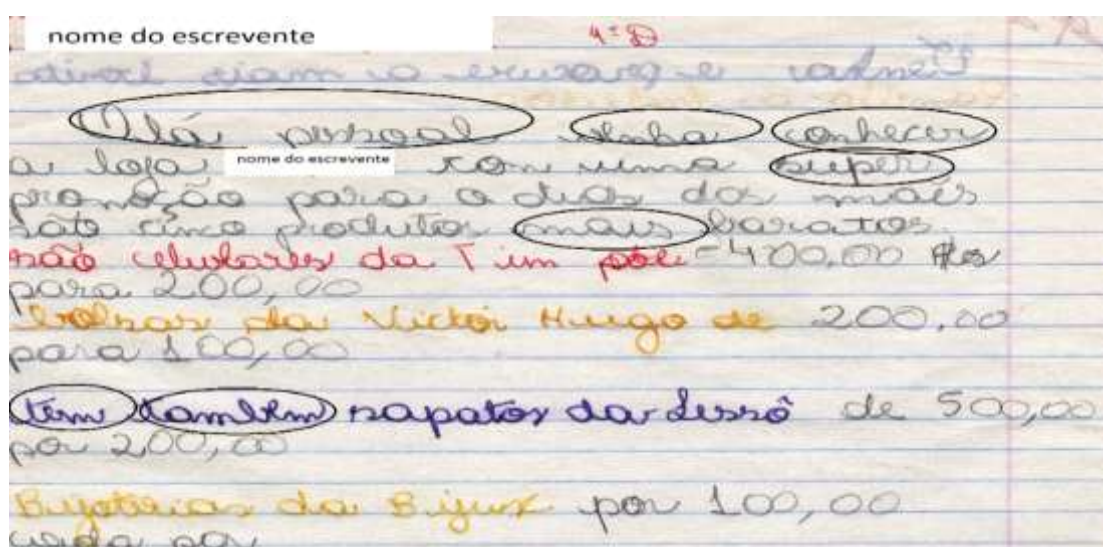 nome do escrevente 4ª D
Olá pessoal venha conhecer
a loja nome do escrevente com uma super
promoção para o dias das mães
são cinco produtos mais baratos.
são celulares da Tim 400,00
para 200,00
bolsas da Victor Hugo de 200,00
para 100,00
tem também sapatos da de 500,00
por 200,00
Bijoterias da Bijux por 100,00
cada par